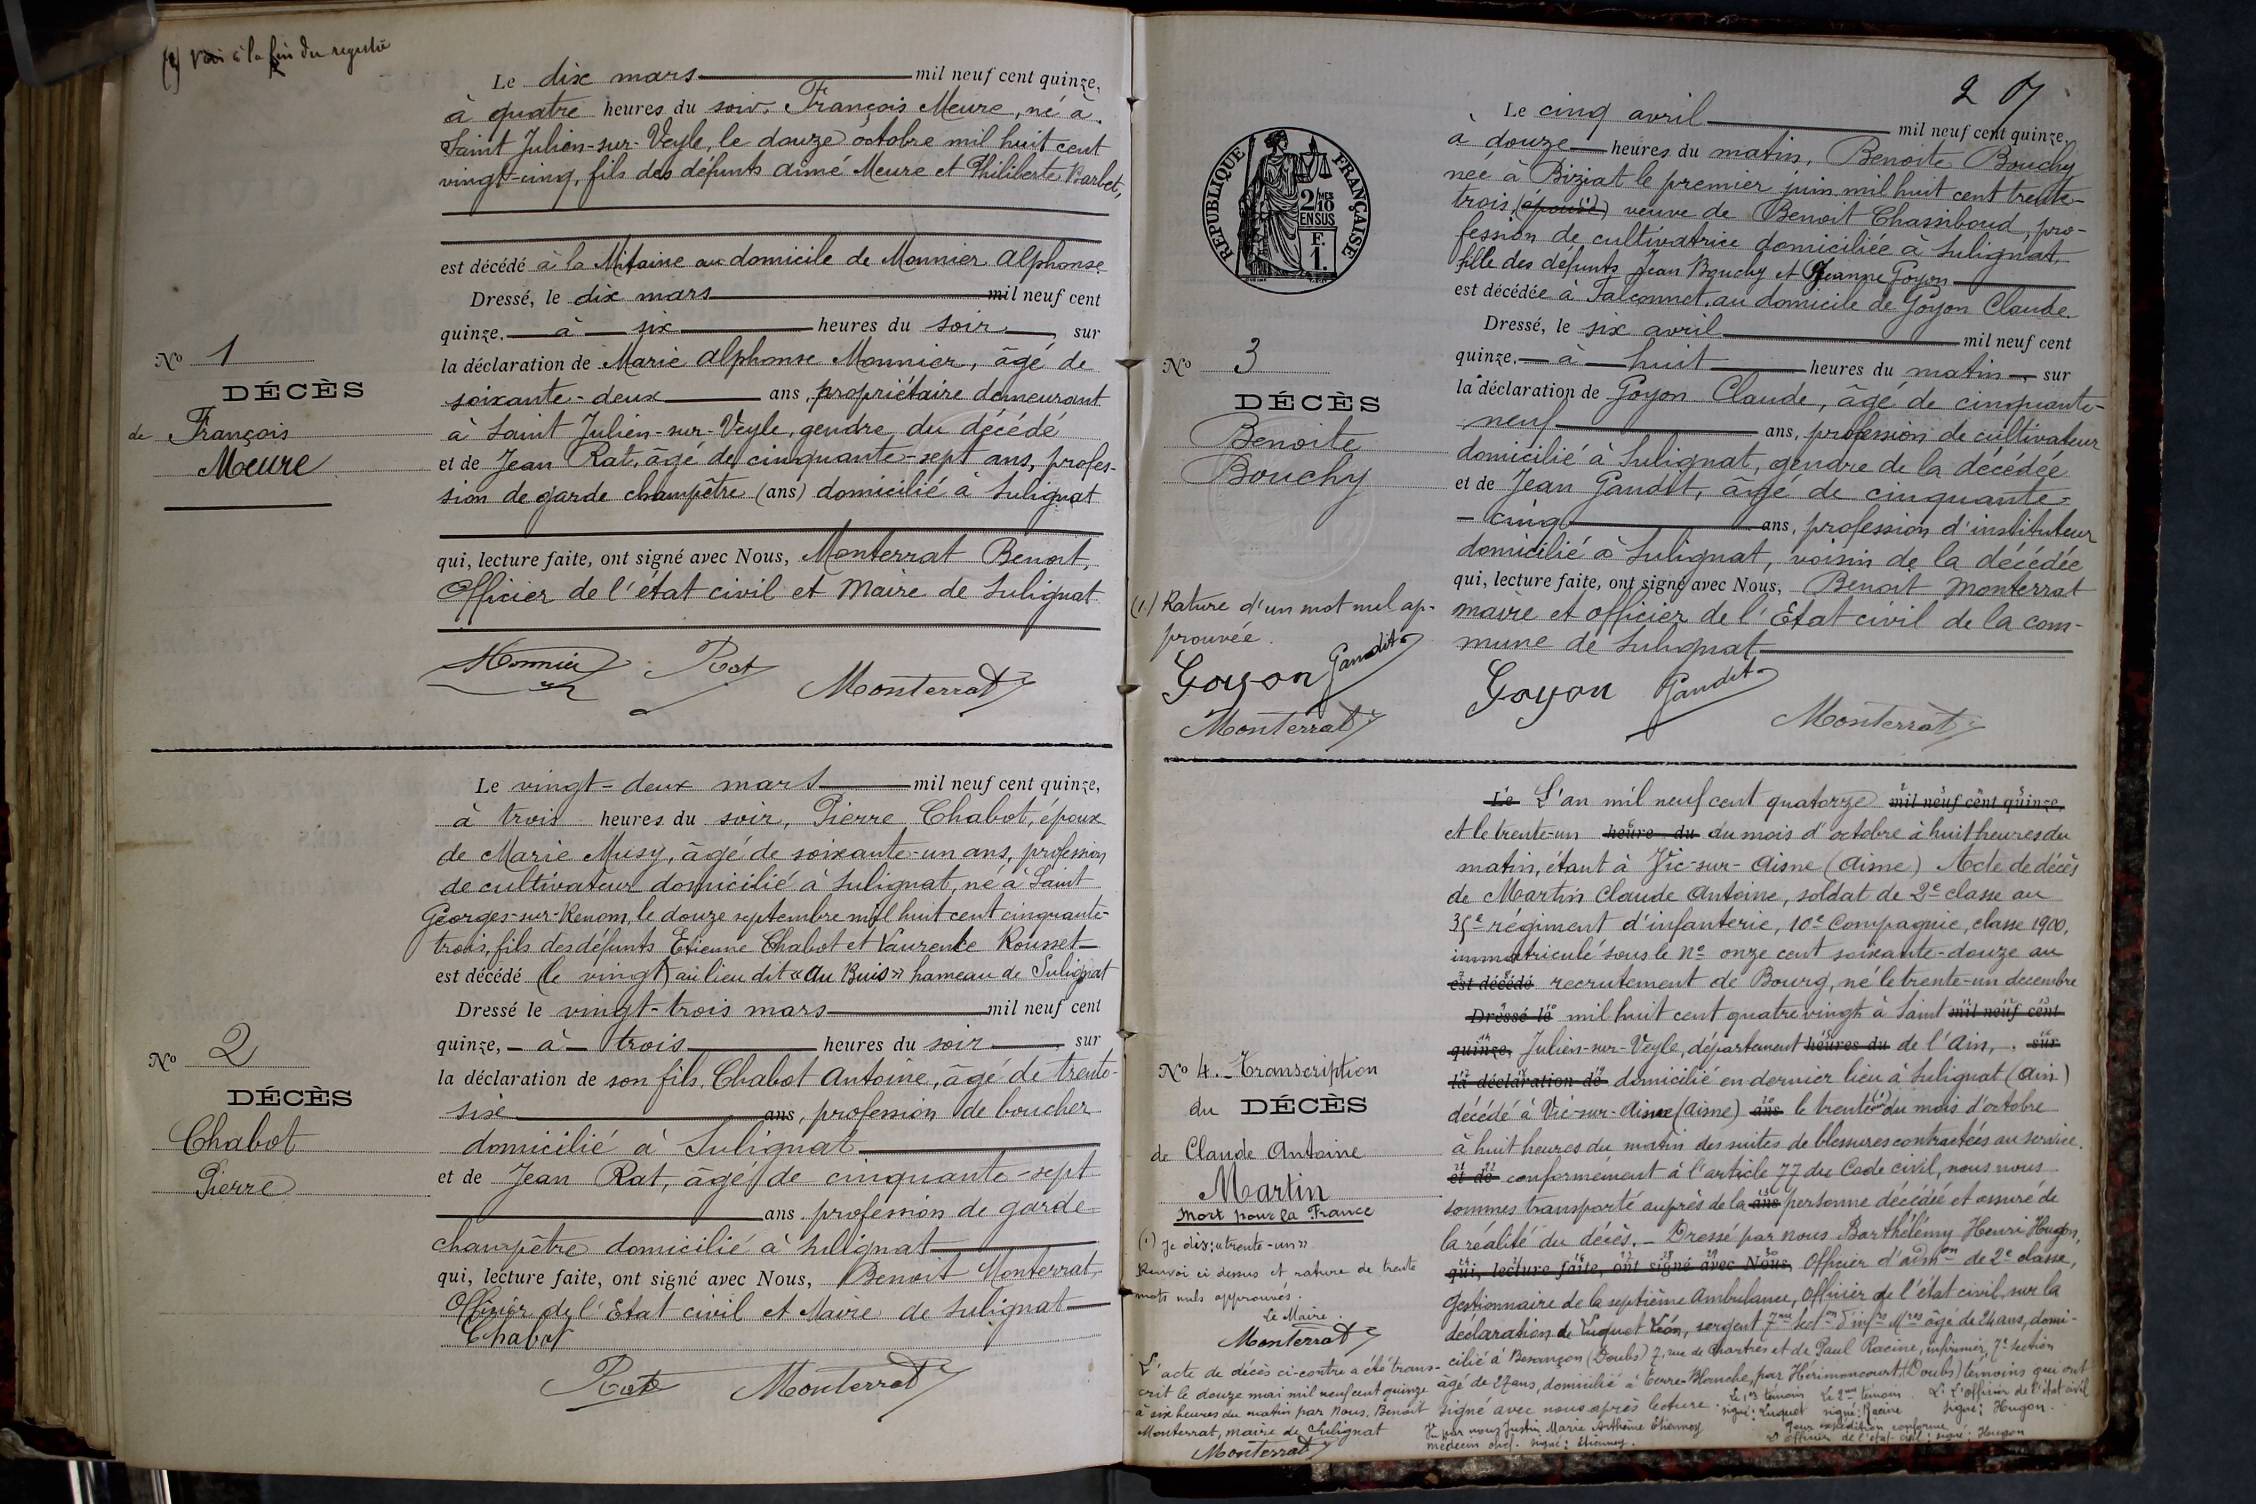 (1) Voir à la fin du registre
Le dix mars mil neuf cent quinze,
à quatre heures du soir. François Meure, né à
Saint Julien-sur-Veyle, le douze octobre mil huit cent
vingt-cinq, fils des défunts aimé Meure et Philiberte Barbet,
est décédé à la Mitaine au domicile de Monnier Alphonse
Dressé, le dix mars mil neuf cent
quinze. à six heures du soir, sur
la déclaration de Marie Alphonse Monnier, âgé de
soixante-deux ans, propriétaire demeurant
à Saint Julien-sur-Veyle, gendre du décédé
et de Jean Rat, âgé de cinquante-sept ans, profes-
sion de garde champêtre (ans) domicilié à Sulignat
qui, lecture faite, ont signé avec Nous, Monterrat Benoit,
Officier de l'état civil et Maire de Sulignat
Monnier Rat Monterrat
No 1
DÉCÈS
de François
Meure
Le vingt-deux mars mil neuf cent quinze,
à trois heures du soir, Pierre Chabot, époux
de Marie Musy, âgé de soixante-un ans, profession
de cultivateur domicilié à Sulignat, né à Saint
Georges-sur-Renom, le douze septembre mil huit cent cinquante-
trois, fils des défunts Etienne Chabot et Laurence Rousset
est décédé (le vingt) au lieu dit «au Buis» hameau de Sulignat
Dressé le vingt-trois mars mil neuf cent
quinze, à trois heures du soir sur
la déclaration de son fils, Chabot Antoine, âgé de trente-
six ans, profession de boucher
domicilié à Sulignat
et de Jean Rat, âgé de cinquante-sept
ans profession de garde-
champêtre domicilié à Sulignat
qui, lecture faite, ont signé avec Nous, Benoit Monterrat,
Officier de l'Etat civil et Maire de Sulignat
Chabot
Rat Monterrat
No 2
DÉCÈS
Chabot
Pierre
2
RÉPUBLIQUE FRANÇAISE
2/10
EN SUS
F.
1.
Le cinq avril mil neuf cent quinze,
à douze heures du matin, Benoite Bouchy
née à Biziat le premier juin mil huit cent trente-
trois, (épouse) veuve de Benoit Chassiboud, pro-
fession de cultivatrice domiciliée à Sulignat,
fille des défunts Jean Bouchy et Jeanne Goyon
est décédée à Falconnet, au domicile de Goyon Claude
Dressé, le six avril mil neuf cent
quinze. à huit heures du matin, sur
la déclaration de Goyon Claude, âgé de cinquante-
neuf ans, profession de cultivateur
domicilié à Sulignat, gendre de la décédée
et de Jean Gaudet, âgé de cinquante-
-cinq ans, profession d'instituteur
domicilié à Sulignat, voisin de la décédée
qui, lecture faite, ont signé avec Nous, Benoit Monterrat
maire et officier de l'Etat civil de la com-
mune de Sulignat
Goyon Gaudet Monterrat
No 3
DÉCÈS
Benoite
Bouchy
(1.) Rature d'un mot nul ap-
prouvée.
Goyon Gaudet
Monterrat
Le L'an mil neuf cent quatorze mil neuf cent quinze,
et le trente-un heure du du mois d'octobre à huit heures du
matin, étant à Vic-sur-Aisne (Aisne) Acte de décès
de Martin Claude Antoine, soldat de 2e classe au
35e régiment d'infanterie, 10e Compagnie, classe 1900,
immatriculé sous le No onze cent soixante-douze au
est décédé recrutement de Bourg, né le trente-un décembre
Dressé le mil huit cent quatre vingt à Saint mil neuf cent
quinze, Julien-sur-Veyle, département heures du de l'Ain, sur
la déclaration de domicilié en dernier lieu à Sulignat (Ain)
décédé à Vic-sur-Aisne (Aisne) ans le trente (1) du mois d'octobre
à huit heures du matin des suites de blessures contractées au service.
et de conformément à l'article 77 du Code civil, nous nous
sommes transporté auprès de la ans personne décédée et assuré de
la réalité du décès. - Dressé par nous Barthélémy Henri Hugon,
qui, lecture faite, ont signé avec Nous, Officier d'adm.on de 2e classe,
Gestionnaire de la septième Ambulance, Officier de l'état civil, sur la
déclaration de Luquet Léon, sergent 7me Sect.on d'inf.rs M.res âgé de 24 ans, domi-
cilié à Besançon (Doubs) 7, rue de Chartres et de Paul Racine, infirmier, 7e section
âgé de 27 ans, domicilié à Terre-Blanche, par Hérimoncourt (Doubs) témoins qui ont
signé avec nous après lecture. Le 1er témoin Le 2me témoin L'Officier de l'état civil
signé: Luquet signé: Racine signé: Hugon.
Vu par nous Justin Marie Anthême Etiennez Pour expédition conforme
médecin chef. signé: Etiennez. L'officier de l'état-civil: signé: Hugon
No 4. Transcription
du DÉCÈS
de Claude Antoine
Martin
Mort pour la France
(1) Je dis: «trente-un»
Renvoi ci dessus et rature de trente
mots nuls approuvés.
Le Maire.
Monterrat
L'acte de décès ci-contre a été trans-
crit le douze mai mil neuf cent quinze
à six heures du matin par nous, Benoit
Monterrat, maire de Sulignat
Monterrat